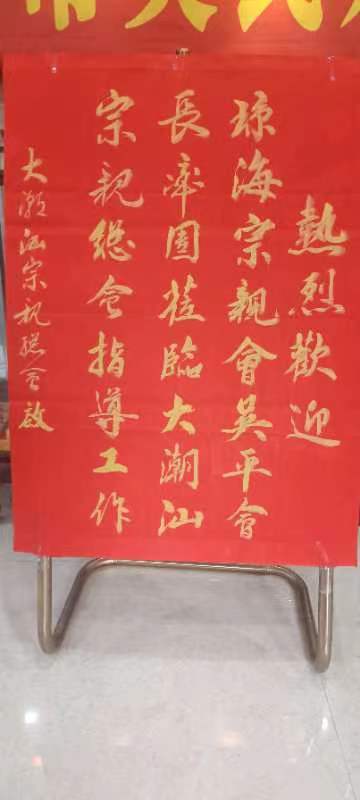 熱烈歡迎
琼海宗親會吴平會
長率團莅臨大潮汕
宗親總会指導工作
大潮汕宗親總会啟